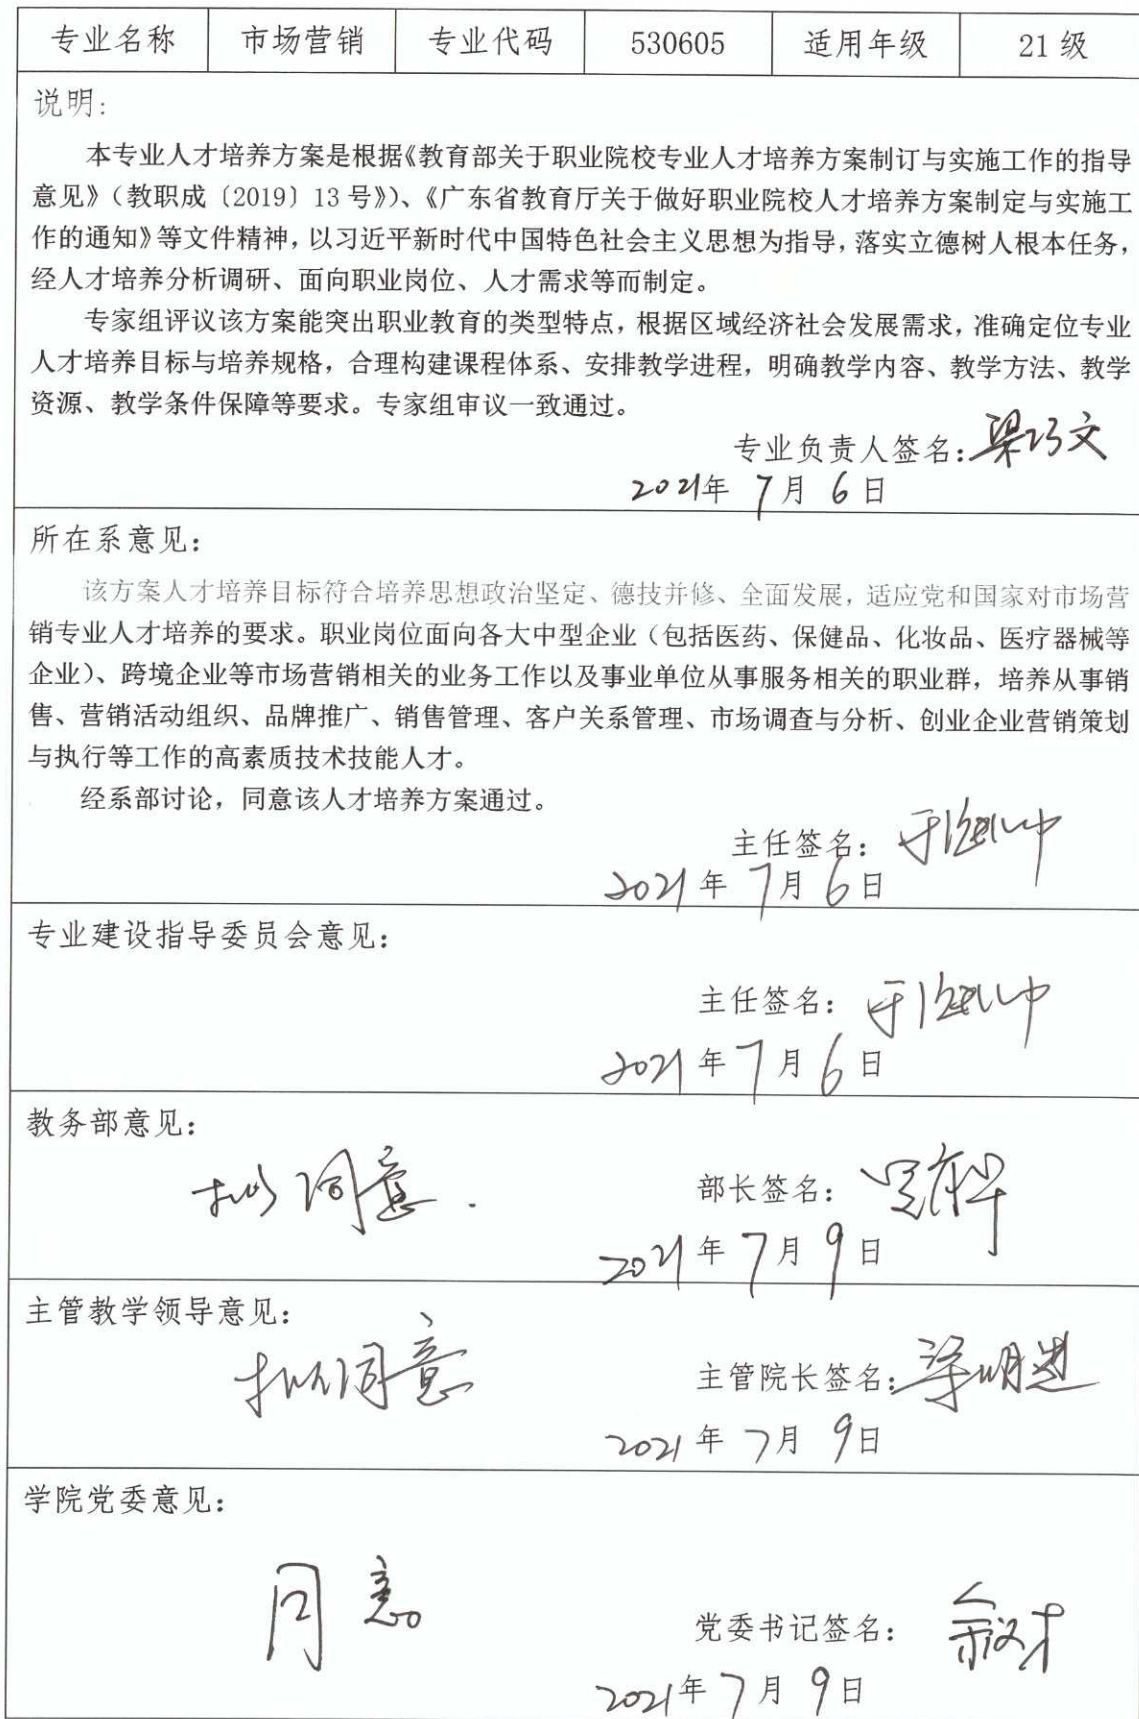 专业名称 市场营销 专业代码 530605 适用年级 21级
说明:
本专业人才培养方案是根据《教育部关于职业院校专业人才培养方案制订与实施工作的指导
意见》（教职成〔2019〕13号》）、《广东省教育厅关于做好职业院校人才培养方案制定与实施工
作的通知》等文件精神，以习近平新时代中国特色社会主义思想为指导，落实立德树人根本任务，
经人才培养分析调研、面向职业岗位、人才需求等而制定。
专家组评议该方案能突出职业教育的类型特点，根据区域经济社会发展需求，准确定位专业
人才培养目标与培养规格，合理构建课程体系、安排教学进程，明确教学内容、教学方法、教学
资源、教学条件保障等要求。专家组审议一致通过。
专业负责人签名：梁巧文
2021年 7月 6日
所在系意见：
该方案人才培养目标符合培养思想政治坚定、德技并修、全面发展，适应党和国家对市场营
销专业人才培养的要求。职业岗位面向各大中型企业（包括医药、保健品、化妆品、医疗器械等
企业）、跨境企业等市场营销相关的业务工作以及事业单位从事服务相关的职业群，培养从事销
售、营销活动组织、品牌推广、销售管理、客户关系管理、市场调查与分析、创业企业营销策划
与执行等工作的高素质技术技能人才。
经系部讨论，同意该人才培养方案通过。
主任签名：
2021年 7月 6日
专业建设指导委员会意见：
主任签名：
2021年 7月 6日
教务部意见：
拟同意.
部长签名：
2021年 7月 9日
主管教学领导意见：
拟同意
主管院长签名：
2021年 7月 9日
学院党委意见：
同意
党委书记签名：
2021年 7月 9日